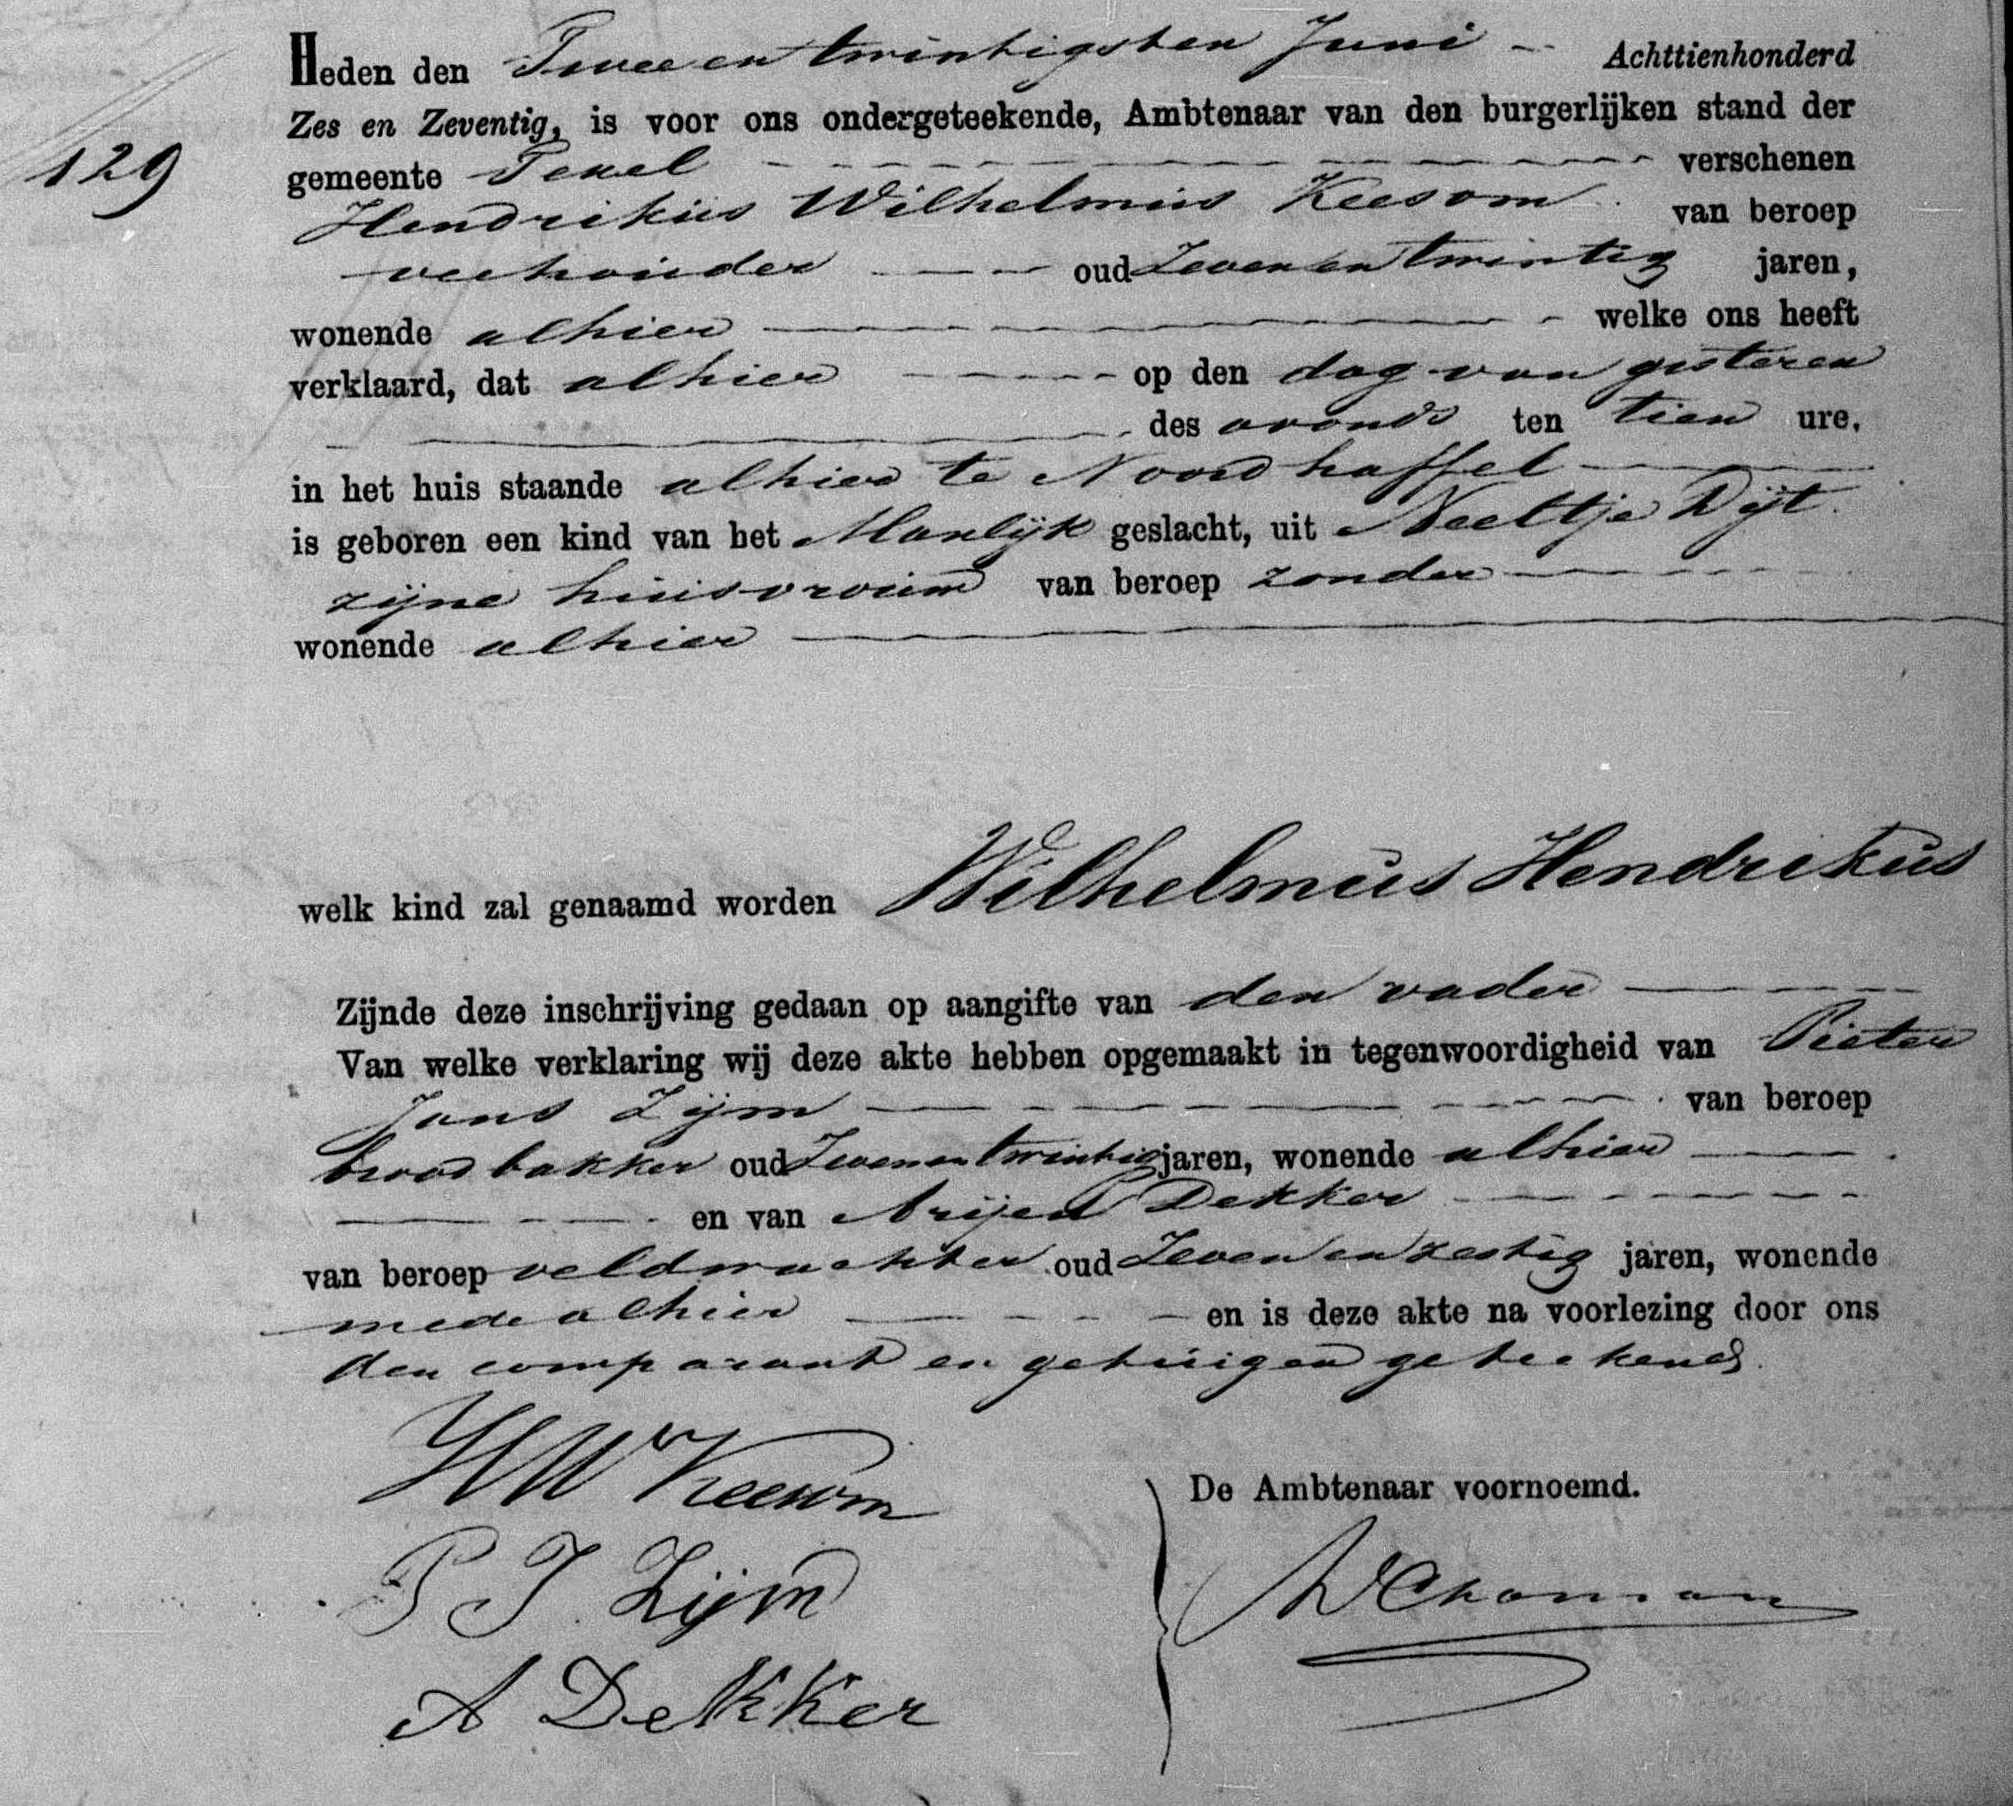 Heden den Tweeentwintigsten Juni Achttienhonderd
129
Zes en Zeventig, is voor ons ondergeteekende, Ambtenaar van den burgerlijken stand der
gemeente Texel verschenen
Hendrikus Wilhelmus Keesom van beroep
veehouder oud Zevenentwintig jaren,
wonende alhier welke ons heeft
verklaard, dat alhier op den dag van gisteren
des avonds ten tien ure,
in het huis staande alhier te Noordhaffel
is geboren een kind van het Manlijk geslacht, uit Neeltje Dijt
zijne huisvrouw van beroep zonder
wonende alhier
welk kind zal genaamd worden Wilhelmus Hendrikus
Zijnde deze inschrijving gedaan op aangifte van den vader
Van welke verklaring wij deze akte hebben opgemaakt in tegenwoordigheid van Pieter
Jans Zijm van beroep
broodbakker oud Zevenentwintig jaren, wonende alhier
en van Arijen Dekker
van beroep veldwachter oud Zevenenzestig jaren, wonende
mede alhier en is deze akte na voorlezing door ons
den comparant en getuigen geteekend.
HW Keesom
De Ambtenaar voornoemd.
P J Zijm
A Dekker